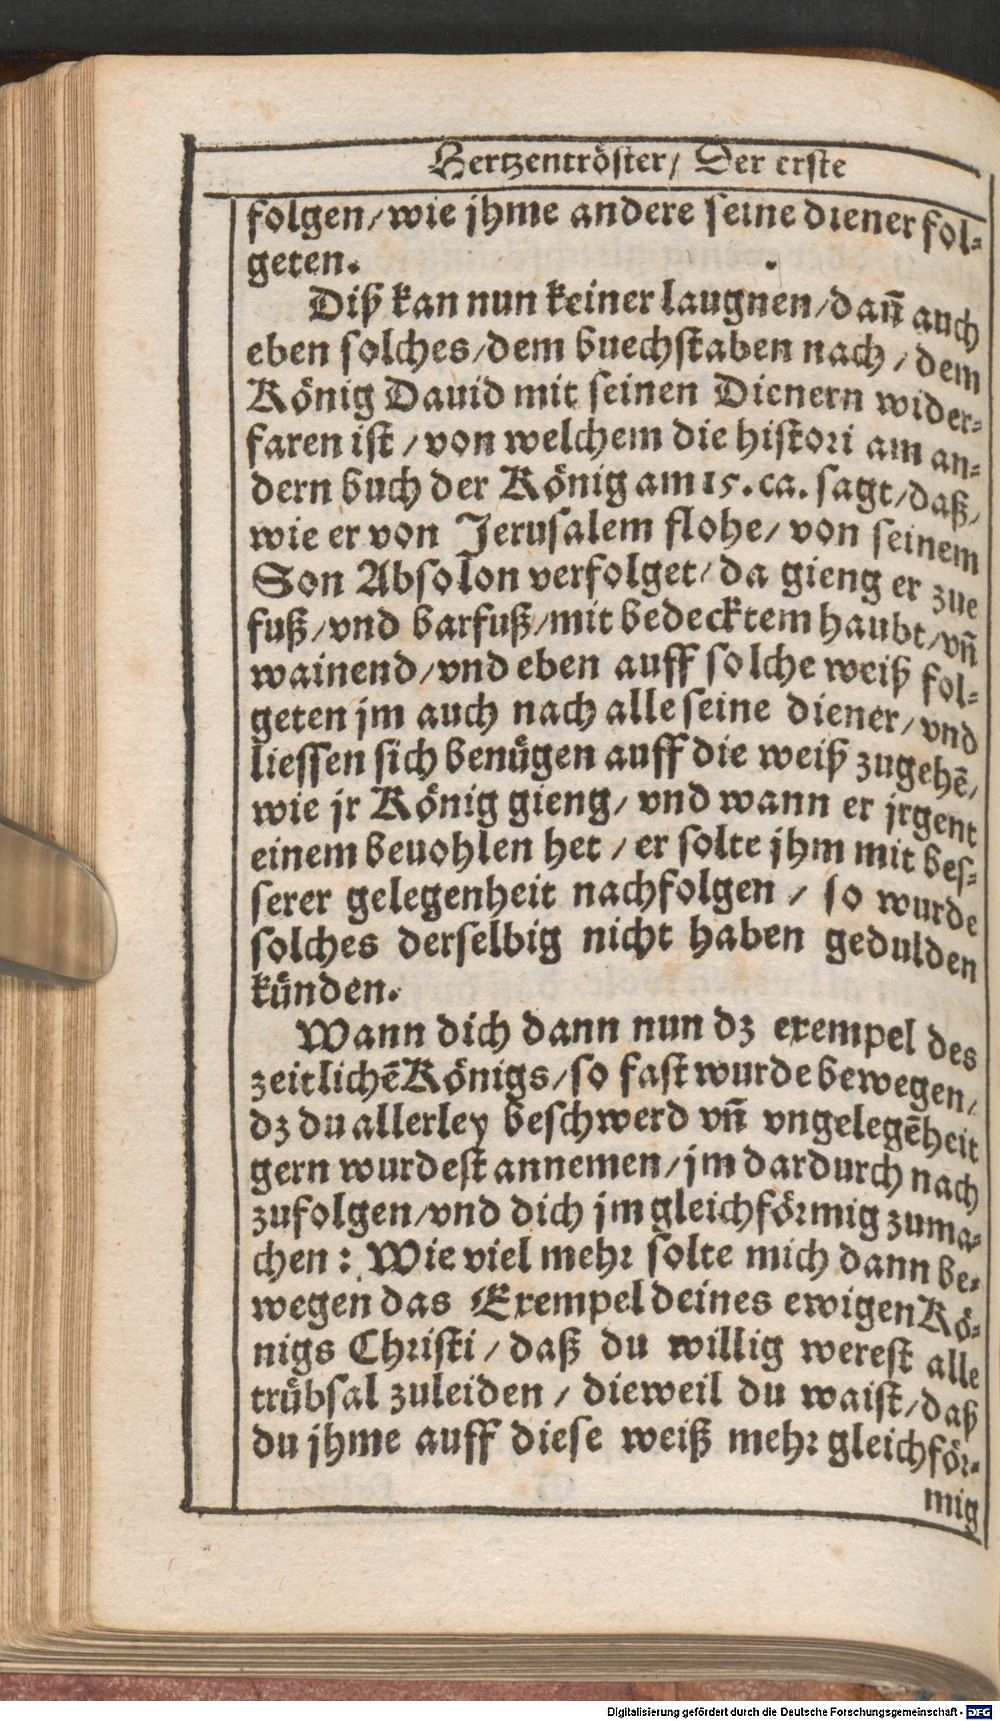 Hertzentröster/ Der erste
folgen/wie jhme andere seine diener fol-
geten.
Diß kan nun keiner laugnen/dañ auch
eben solches/dem buechstaben nach/ dem
König Dauid mit seinen Dienern wider-
faren ist/ von welchem die histori am an-
dern buch der König am 15. ca. sagt/daß/
wie er von Jerusalem flohe/ von seinem
Son Absolon verfolget/ da gieng er zue
fuß/vnd barfuß/mit bedecktem haubt/vñ
wainend/vnd eben auff solche weiß fol-
geten jm auch nach alle seine diener/ vnd
liessen sich benůgen auff die weiß zugehē/
wie jr König gieng/ vnd wann er jrgent
einem beuohlen het/ er solte jhm mit bes-
serer gelegenheit nachfolgen/ so wurde
solches derselbig nicht haben gedulden
künden.
Wann dich dann nun dz exempel des
zeitlichē Königs/so fast wurde bewegen/
dz du allerley beschwerd vñ vngelegēheit
gern wurdest annemen/jm dardurch nach
zufolgen/vnd dich jm gleichförmig zuma-
chen: Wie viel mehr solte mich dann be-
wegen das Exempel deines ewigen Kö-
nigs Christi/ daß du willig werest alle
trübsal zuleiden/ dieweil du waist/daß
du jhme auff diese weiß mehr gleichför-
mig
Digitalisierung gefördert durch die Deutsche Forschungsgemeinschaft - DFG